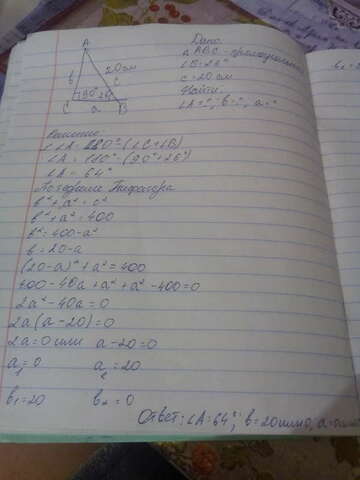 Дано:
△ ABC - прямоугольный
∠B=26°
c=20 см
Найти:
∠A=?, b=?, a=?
A
20 см
b c
C 90° 26° B
a
Решение:
∠A = 180° - (∠C+∠B)
∠A = 180° - (90°+26°)
∠A = 64°
По теореме Пифагора
b²+a²=c²
b²+a²=400
b²=400-a²
b=20-a
(20-a)²+a²=400
400-40a+a²+a²-400=0
2a²-40a=0
2a(a-20)=0
2a=0 или a-20=0
a₁=0 a₂=20
b₁=20 b₂=0
Ответ: ∠A=64°; b=20 или 0, a=0 или